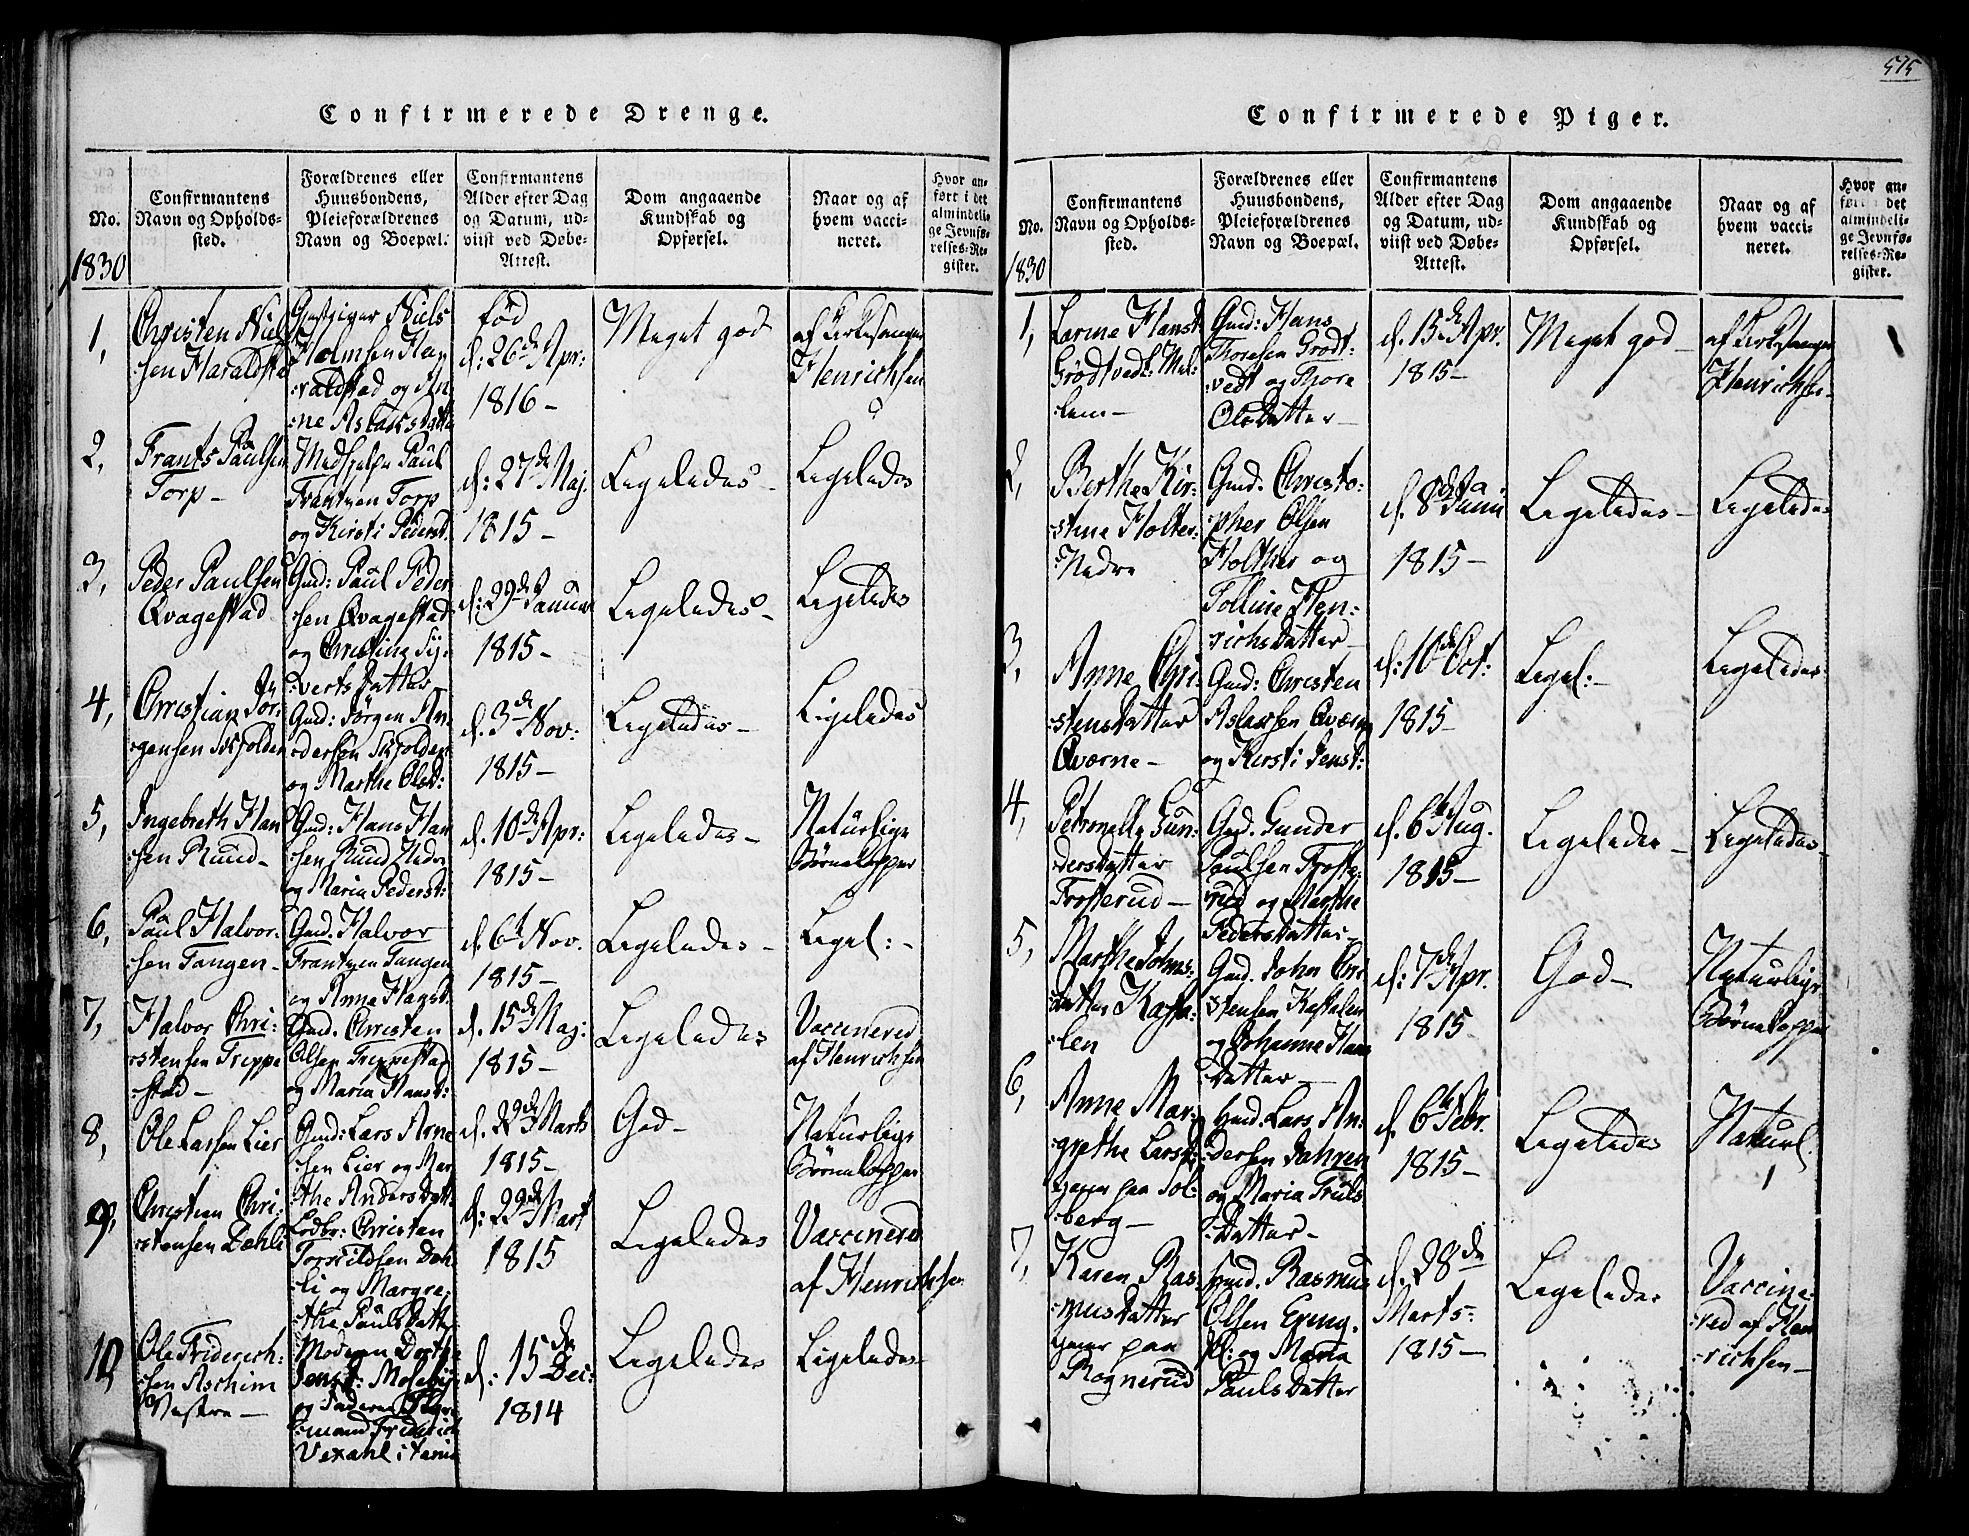 575
Confirmerede Drenge.
No.
Confirmantens
Navn og Opholds-
sted.
Forældrenes eller
Huusbondens,
Pleieforældrenes
Navn og Boepæl.
Confirmantens
Alder efter Dag
og Datum, ud-
viist ved Døbe-
Attest.
Dom angaaende
Kundskab og
Opførsel.
Naar og af
hvem vacci-
neret.
Hvor an-
ført i det
almindeli-
ge Jevnfø-
relses-Re-
gister.
1830
1,
Christen Niel
sen Haraldsta
Gjestgiver Niels
Holmsen Ha-
raldstad og An-
ne Aslaksdatter
fød
d: 26de Apr:
1816 -
Meget god
af Kirkesanger
Henrichsen
2,
Frants Paulsen
Torp -
Paul
Frantzen Torp
og Kirsti Pederst.
d: 27de Maj.
1815 -
Ligeledes -
Ligeledes
3,
Peder Paulsen
Qvagestad
Gmd: Paul Peder
sen Qvagestad
og Christine Sy-
vertsdatter
d: 29de Januar
1815 -
Ligeledes -
Ligeledes
4,
Christian Jør-
gensen Skjolden
Gmd: Jørgen An-
dersen Skjolden
og Marthe Olsd:
d. 3de Nov:
1815 -
Ligeledes -
Ligeledes
5,
Ingebreth Han
sen Ruud -
Gmd: Hans Han
sen Ruud Nedre
og Maria Pederst:
d. 10de Apr:
1815 -
Ligeledes -
Naturlige
Børnekopper
6,
Paul Halvor-
sen Tangen -
Gmd. Halvor
Frantzen Tangen
og Anne Hansd.
d. 6t Nov.
1815 -
Ligeledes -
Ligel: -
7,
Halvor Chri-
stensen Trippe
stad -
Gmd. Christen
Olsen Trippestad
og Maria Hansd:
d. 15de Maj:
1815 -
Ligeledes
Vaccinered
af Henrichsen
8,
Ole Larsen Lier
Gmd: Lars Arne
sen Lier og Mar
the Andersdatt:
d. 22de Marts
1815 -
God -
Naturlige
Børnekopper
9,
Christian Chri-
stensen Dæhli
Christen
Torkildsen Dæh-
li og Margre-
the Paulsdatter
d: 22de Mart
1815
Ligeledes
Vaccinered
af Henrichsen
10,
Ole Friderich-
sen Aschim
Vestre -
Moderen Dorthe
Jensd: Moseby
og Faderen
mand Friderich
Vexahl i
d: 15de Dec:
1814
Ligeledes
Ligeledes -
Confirmerede Piger.
No.
Confirmantens
Navn og Opholds-
sted.
Forældrenes eller
Huusbondens,
Pleieforældrenes
Navn og Boepæl.
Confirmantens
Alder efter Dag
og Datum, ud-
viist ved Døbe-
Attest.
Dom angaaende
Kundskab og
Opførsel.
Naar og af
hvem vacci-
neret.
Hvor an-
ført i det
almindeli-
ge Jevnfø-
relses-Re-
gister.
1830
1,
Karine Hansd.
Grødtvedt Mel-
lem -
Gmd: Hans
Thoresen Grødt-
vedt og Thore
Olsdatter -
d. 15de Apr.
1815 -
Meget god -
af Kirkesanger
Henrichsen -
2,
Berthe Kir-
stine Holter
Nedre
Gmd. Christo-
pher Olsen
Holther og
Tolline Hen-
richsdatter -
d. 8de Janu
1815 -
Ligeledes -
Ligeledes
3,
Anne Chri-
stensdatter
Qværne -
Gmd: Christen
Aslaksen Qværne
og Kirsti Jensd:
d: 10de Oct:
1815 -
Ligel: -
Ligeledes
4,
Petronelle Gun-
dersdatter
Frosterud -
Gmd. Gunder
Paulsen Froste-
rud og Marthe
Pedersdatter -
d. 6te Aug.
1815 -
Ligeledes -
Ligeledes -
5,
Marthe Johns-
datter Kasta-
len
Gmd. John Chri
stensen Kastalen
og Johanne Hans
datter -
d: 7de Apr.
1815
God -
Naturlige
Børnekopper
6,
Anne Mar-
grethe Larsd.
tjener paa Sol-
berg -
Huusmd. Lars An-
dersen Dahren
og Maria Truls
datter -
d. 6te Febr.
1815 -
Ligeledes
Naturl.
7,
Karen Ras-
musdatter
tjener paa
Rognerud
Huusmd. Rasmus
Olsen
og Maria
Paulsdatter
d. 28de
Marts
1815 -
Ligeledes
Vaccine-
red af Hen
richsen -